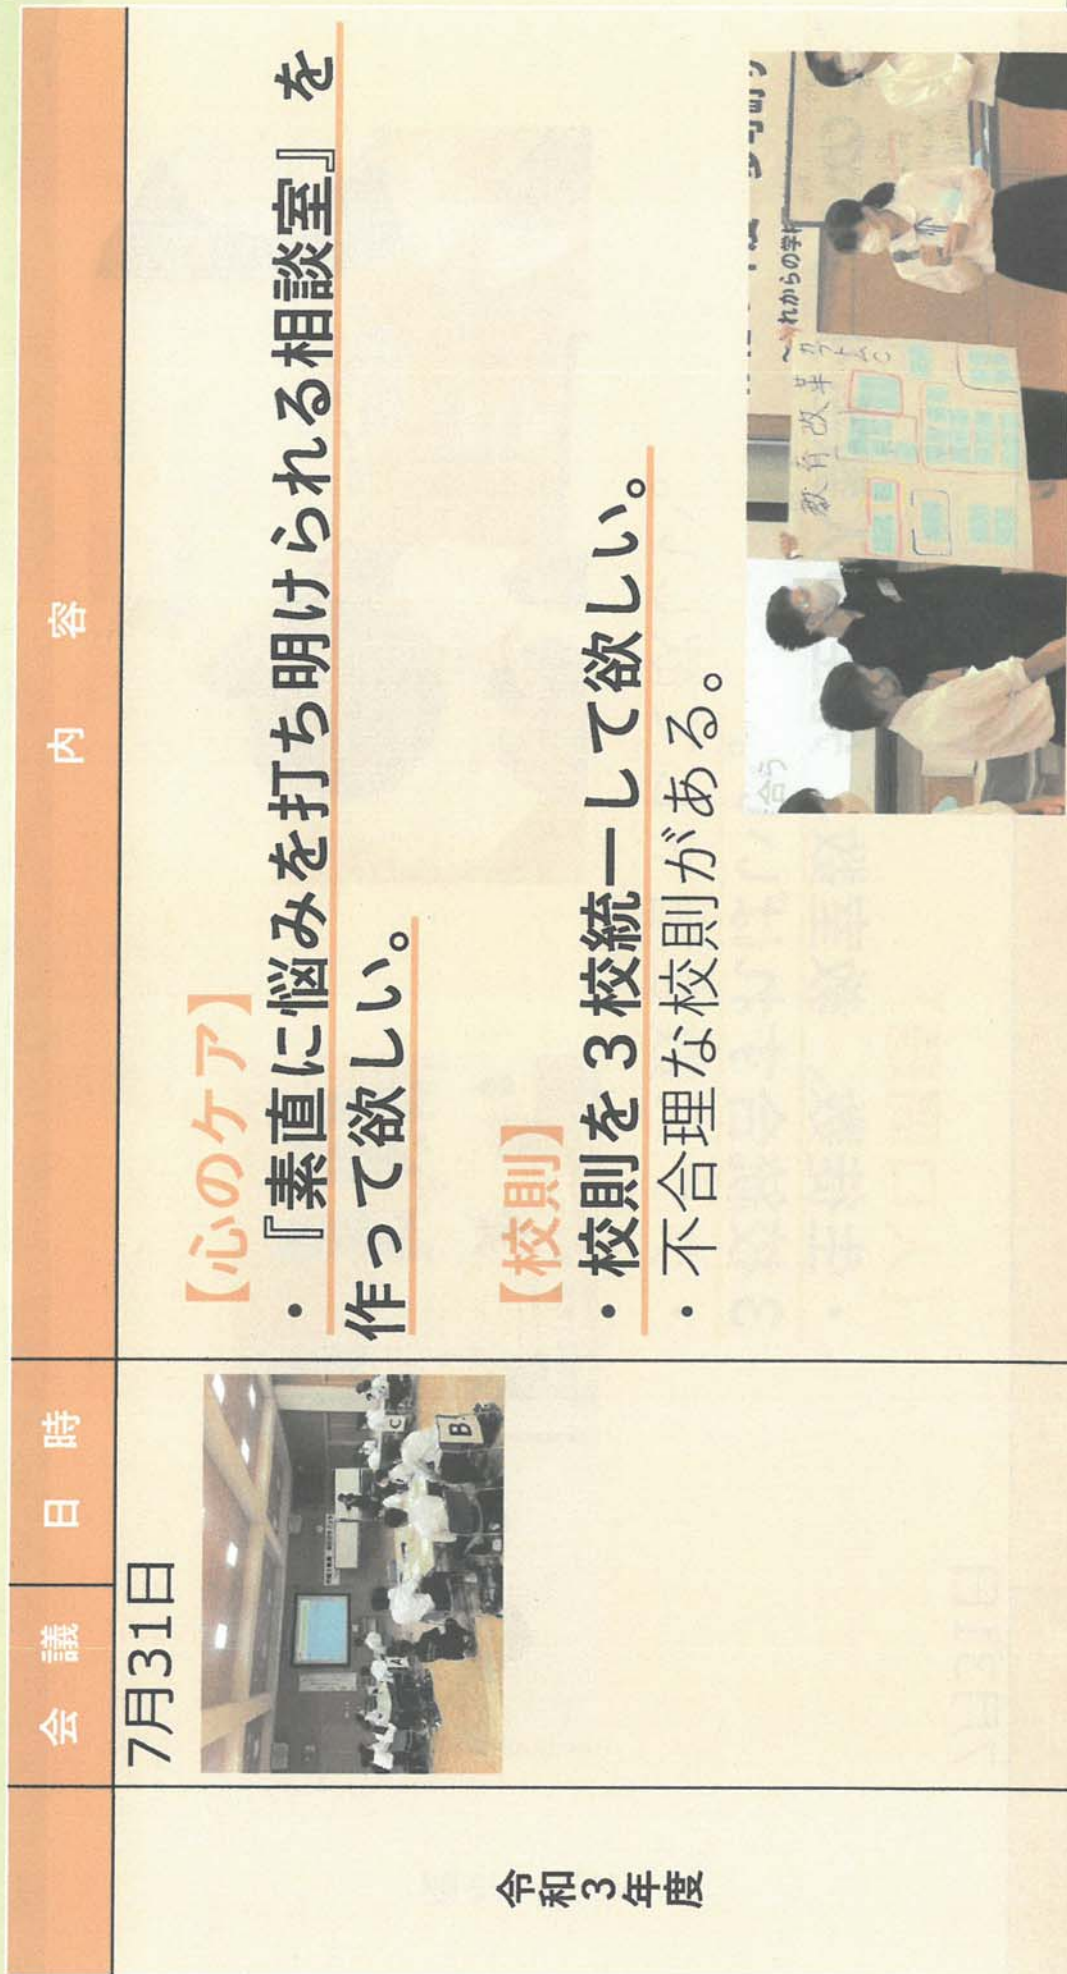 会議
日時
内容
令和3年度
7月31日
【心のケア】
・『素直に悩みを打ち明けられる相談室』を
作って欲しい。
【校則】
・校則を3校統一して欲しい。
・不合理な校則がある。
B
C
A
教育改革
～これからの学校